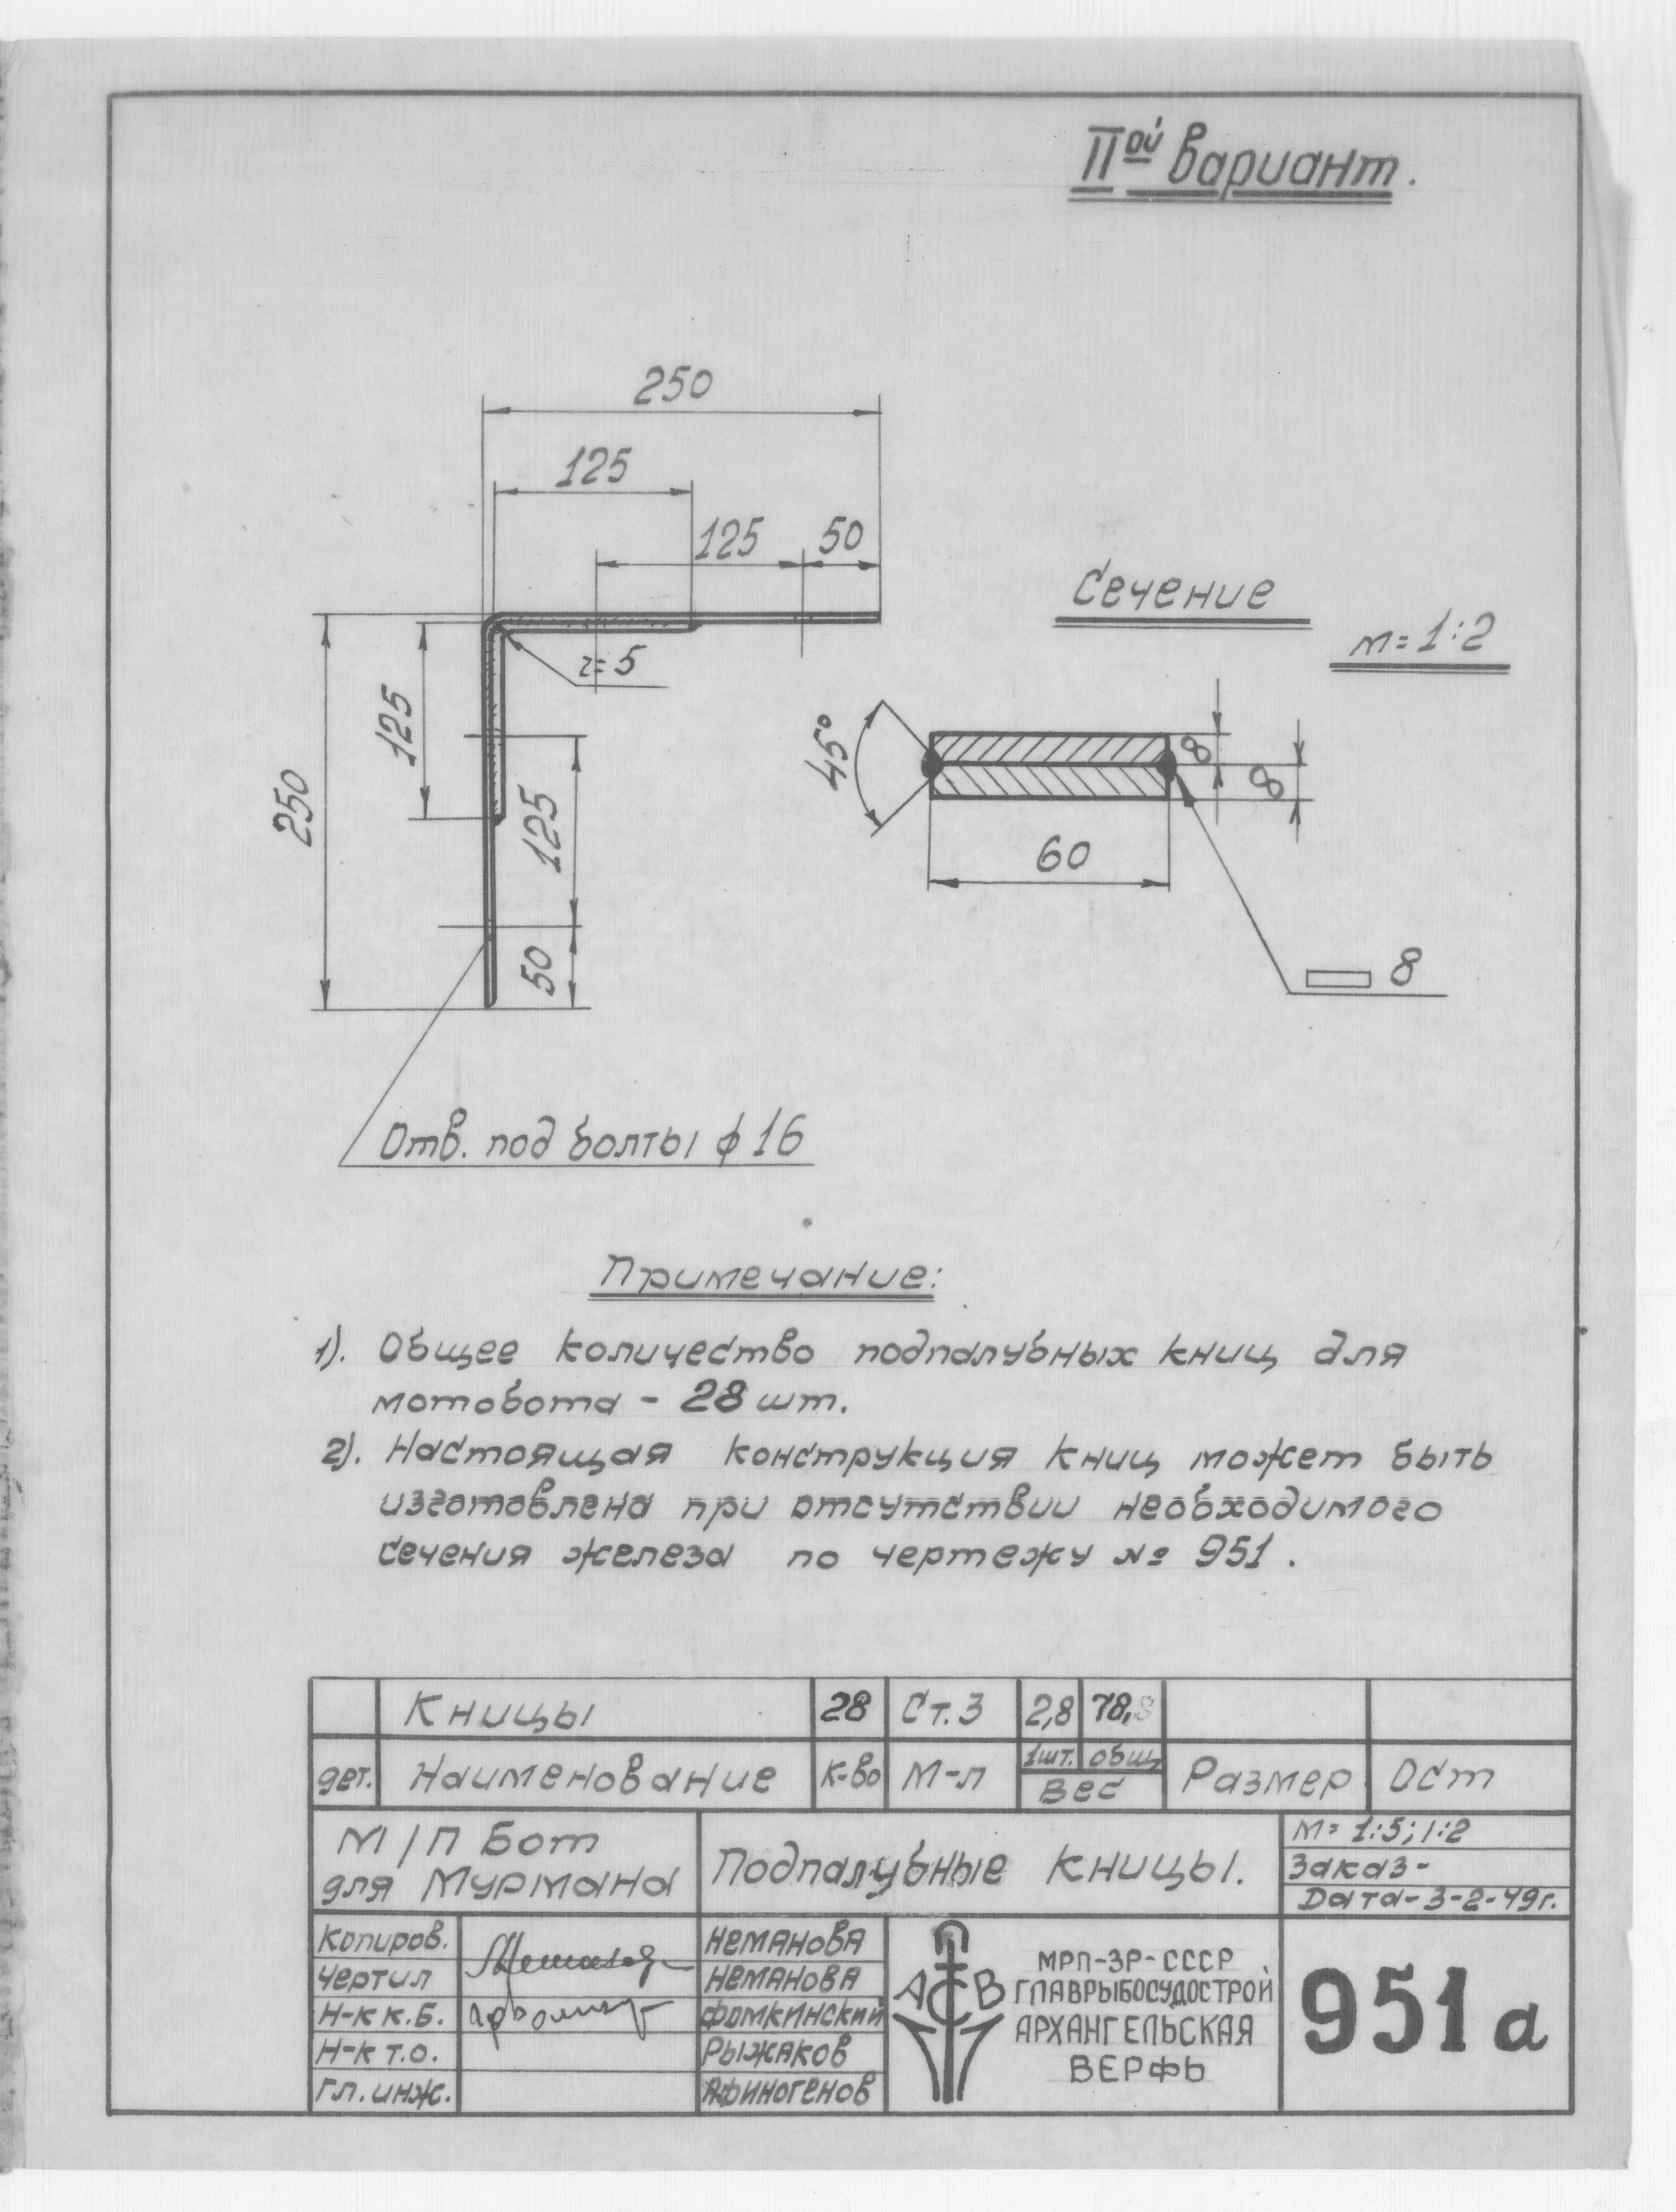 IIой вариант.
250
125
125 50
Сечение
м=1:2
r=5
125
250
125
50
45°
8
8
60
8
Отв. под болты ϕ16
Примечание:
1). Общее количество подпалубных книц для
мотобота - 28 шт.
2). Настоящая конструкция книц может быть
изготовлена при отсутствии необходимого
сечения железа по чертежу № 951.
Кницы 28 Ст.3 2,8 78,
дет. Наименование К-во М-л 1шт. общ Вес Размер Ост
М/П Бот
для Мурмана
Подпалубные кницы.
М= 1:5; 1:2
Заказ-
Дата-3-2-49г.
Копиров. Неманова
Чертил Неманова
Н-к К.Б. Фомкинский
Н-к т.о. Рыжаков
Гл. инж. Афиногенов
АСВ
МРП-ЗР-СССР
ГЛАВРЫБОСУДОСТРОЙ
АРХАНГЕЛЬСКАЯ
ВЕРФЬ
951а